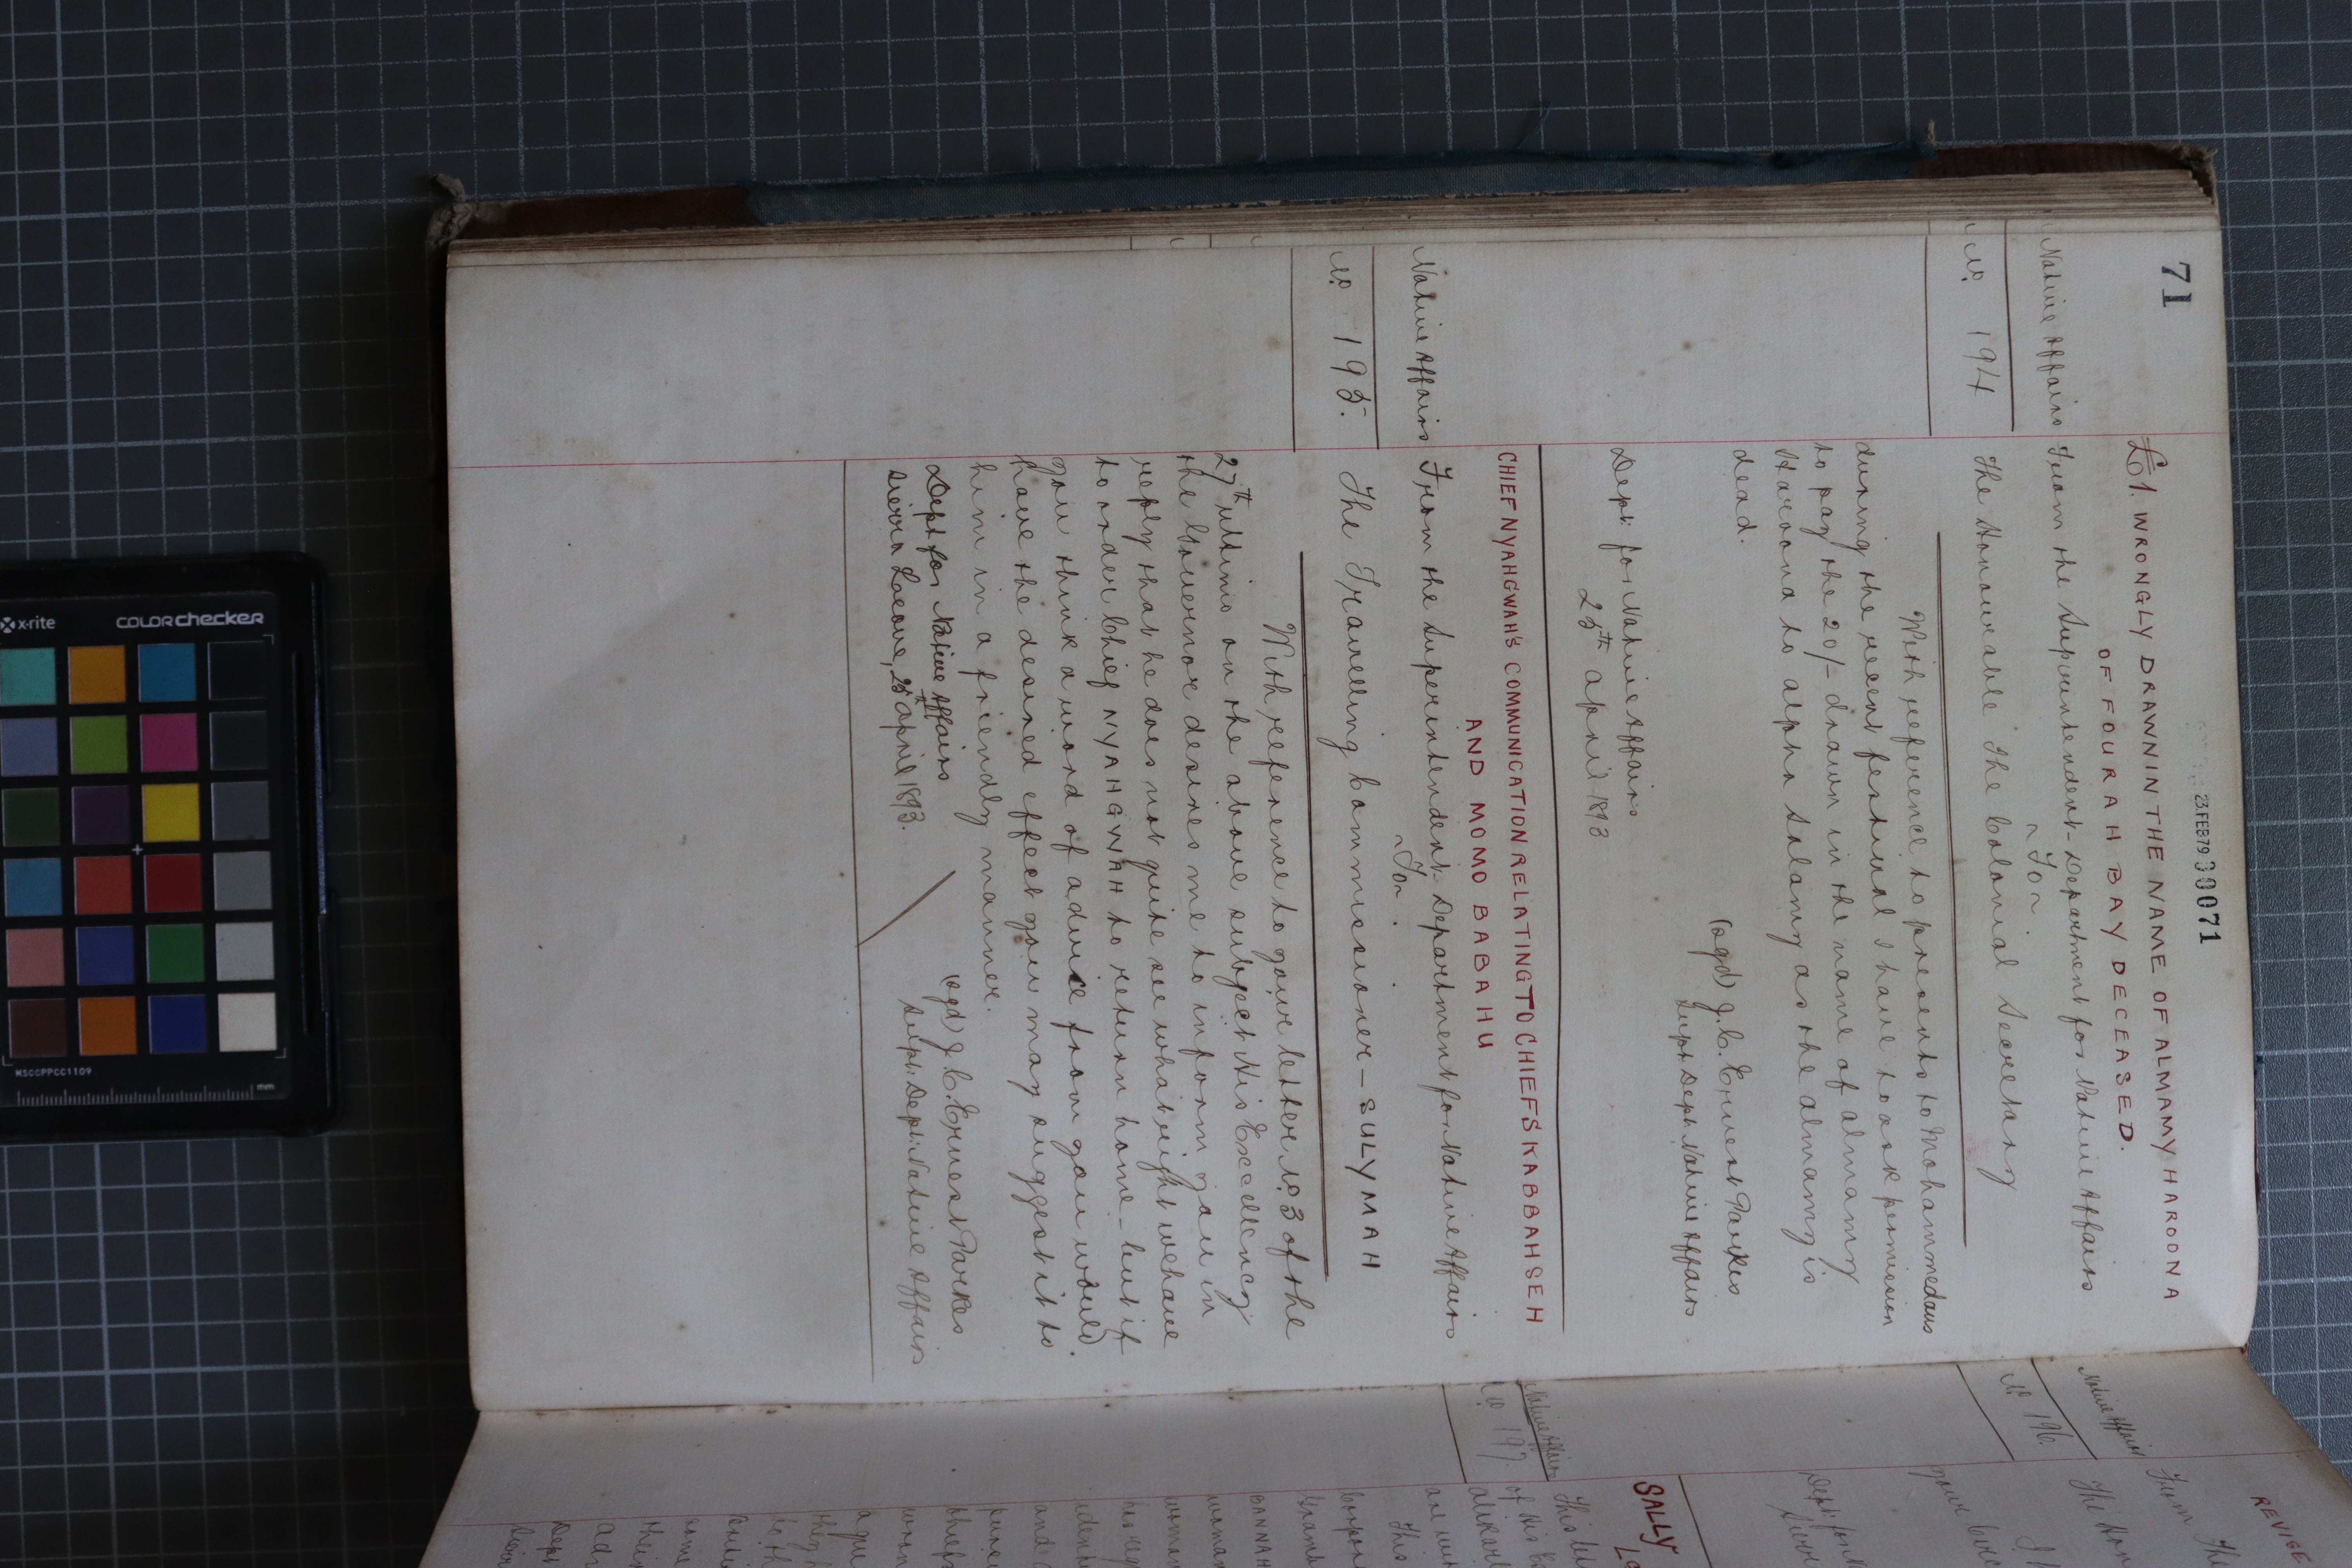 71
23.FEB79 30071
£1. WRONGLY DRAWN IN THE NAME OF ALMAMY HAROONA
OF FOURAH BAY DECEASED.
Native Affairs
From the Superintendent - Department for Native Affairs
~ To ~
No 194
The Honourable The Colonial Secretary
With reference to presents to Mohammedans
during the recent festival I have to ask permission
to pay the 20/- drawn in the name of Almamy
Haroona to Alpha Salamy as the Almamy is
dead.
(sgd) J. C. Ernest Parkes
Supt Dept. Native Affairs
Dept. for Native Affairs
25th April 1893
CHIEF NYAHGWAH'S COMMUNICATION RELATING TO CHIEFS KABBAH SEH
AND MOMO BABAHU
Native Affairs
From the Superintendent - Department for Native Affairs
~ To ~
No 195.
The Travelling Commissioner - SULYMAH
With reference to your letter No 3 of the
27th ultimo on the above subject His Excellency
the Governor desires me to inform you in
reply that he does not quite see what right we have
to order Chief NYAHGWAH to return home - but if
you think a word of advice from you would
have the desired effect you may suggest it to
him in a friendly manner.
(sgd) J. C. Ernest Parkes
Supt: Dept: Native Affairs
Dept for Native Affairs
Sierra Leone, 25th April 1893.
REVISI
Native Affairs
From Th
No 196.
The Hon
I h
your
Dept: for
Sierr
SALLY
Native Affairs
No 197.
This
of His
are
This
BANNAH
woman
woman
and
some
their
Dept
Sierr